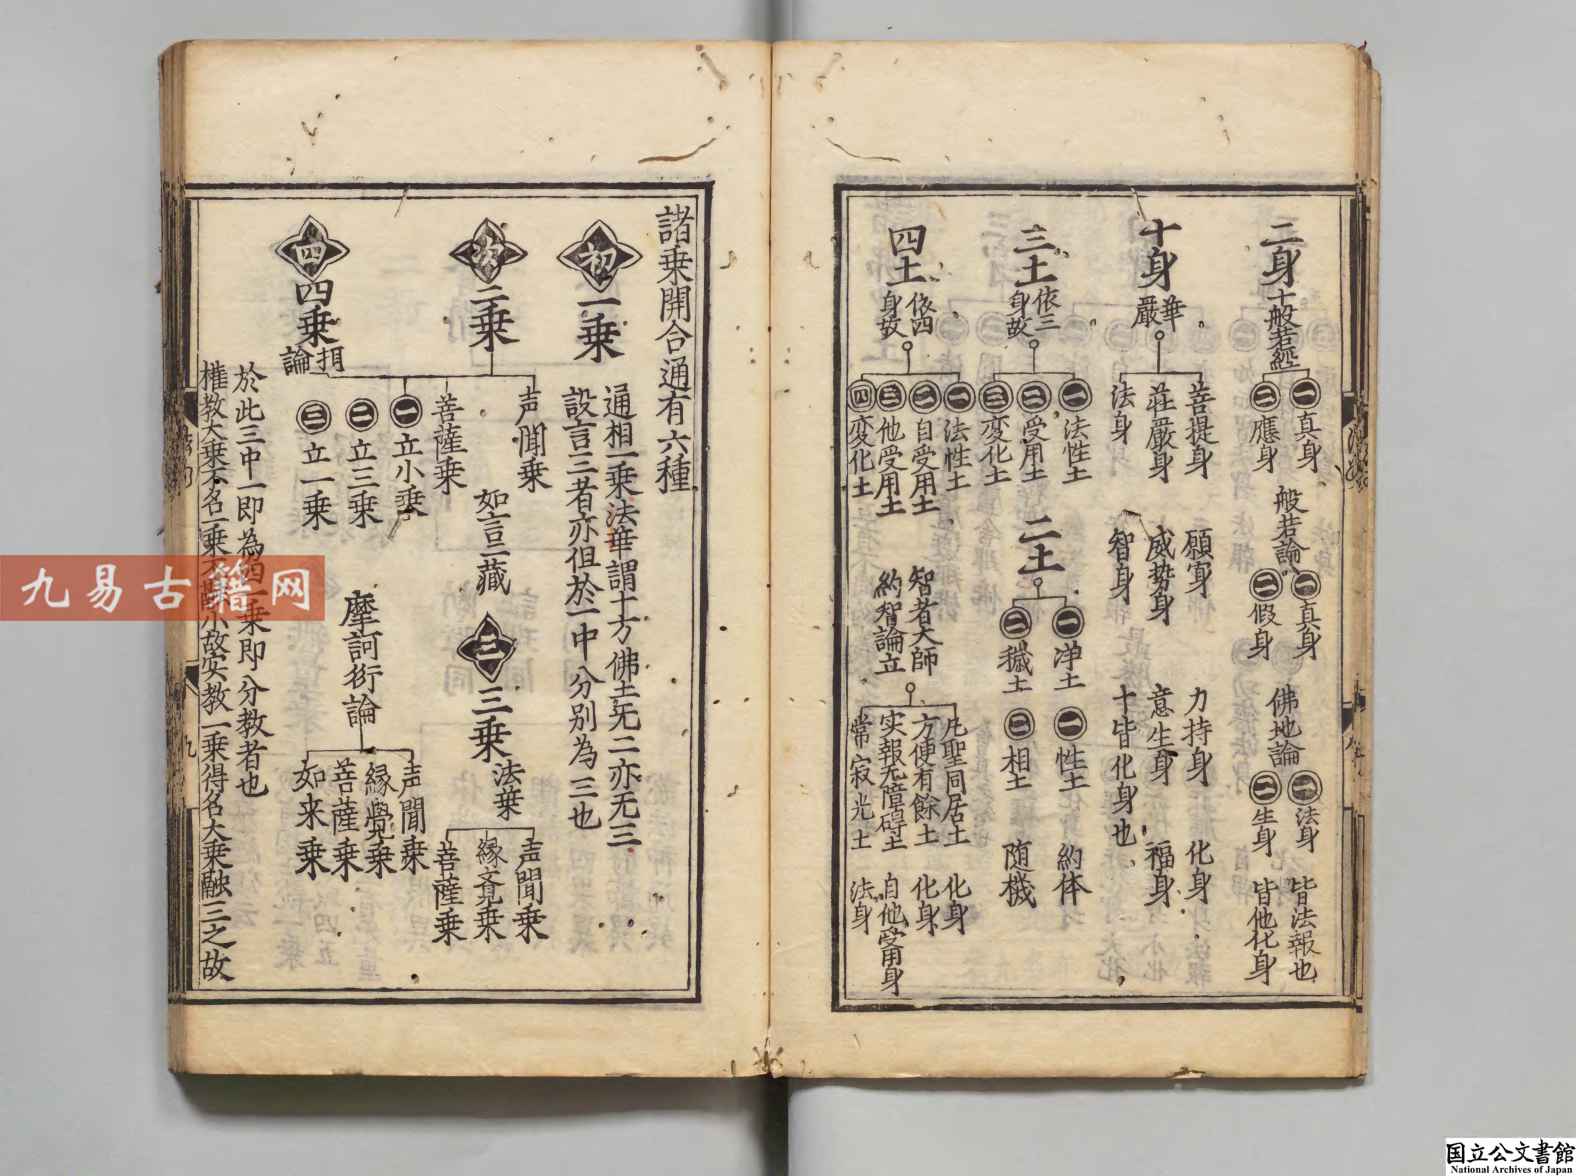 二身
十般若經
㊀真身
㊁應身
般若論
㊀真身
㊁假身
佛地論
㊀法身
㊁生身
皆法報也
皆他化身
十身
華嚴
菩提身
願身
力持身
化身
莊嚴身
威势身
意生身
福身
法身
智身
十皆化身也
三土
依三身故
㊀法性土
㊁受用土
㊂変化土
二土
㊀净土
㊁穢土
㊀性土
㊁相土
約体
随機
四土
依四身故
㊀法性土
㊁自受用土
㊂他受用土
㊃変化土
智者大師
約智論立
凡聖同居土
方便有餘土
实報无障碍土
常寂光土
化身
化身
自他受用身
法身
諸乗開合通有六種
初
一乗
通相一乗法華謂十方佛土无二亦无三
設言三者亦但於一中分别為三也
次
二乗
声聞乗
菩薩乗
如言二藏
三
三乗
法華
声聞乗
縁覚乗
菩薩乗
四
四乗
論
㊀立小乗
㊁立三乗
㊂立一乗
摩訶衍論
声聞乗
縁覺乗
菩薩乗
如来乗
於此三中一即為四一乗即分教者也
權教大乗不名一乗不小故安教一乗得名大乗融三之故
九
九易古籍网
国立公文書館
National Archives of Japan